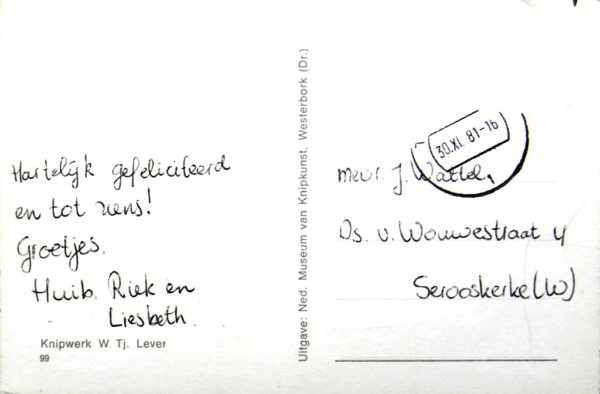 Hartelijk gefeliciteerd
en tot ziens!
Groetjes.
Huib, Riek en
Liesbeth.
Knipwerk W. Tj. Lever
99
Uitgave: Ned. Museum van Knipkunst, Westerbork (Dr.)
30.XI. 81-16
mevr. J. Wattel,
Ds. v. Wouwestraat 4
Serooskerke (W)